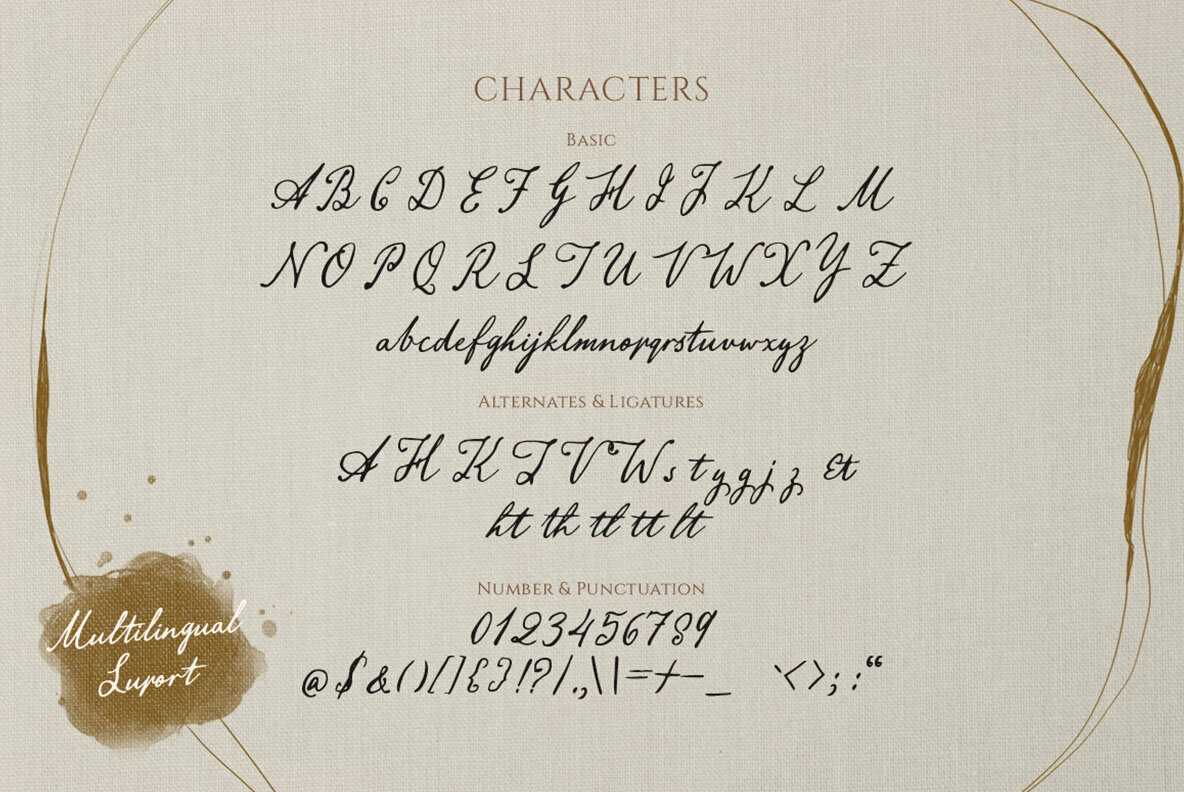 CHARACTERS
BASIC
A B C D E F G H I J K L M
N O P Q R S T U V W X Y Z
abcdefghijklmnopqrstuvwxyz
ALTERNATES & LIGATURES
A H K T V W s t y g j z &t
ht th tl tt lt
NUMBER & PUNCTUATION
0123456789
@$&()[]{}!?/.,\|=+-_ `<>;:“
Multilingual
Suport